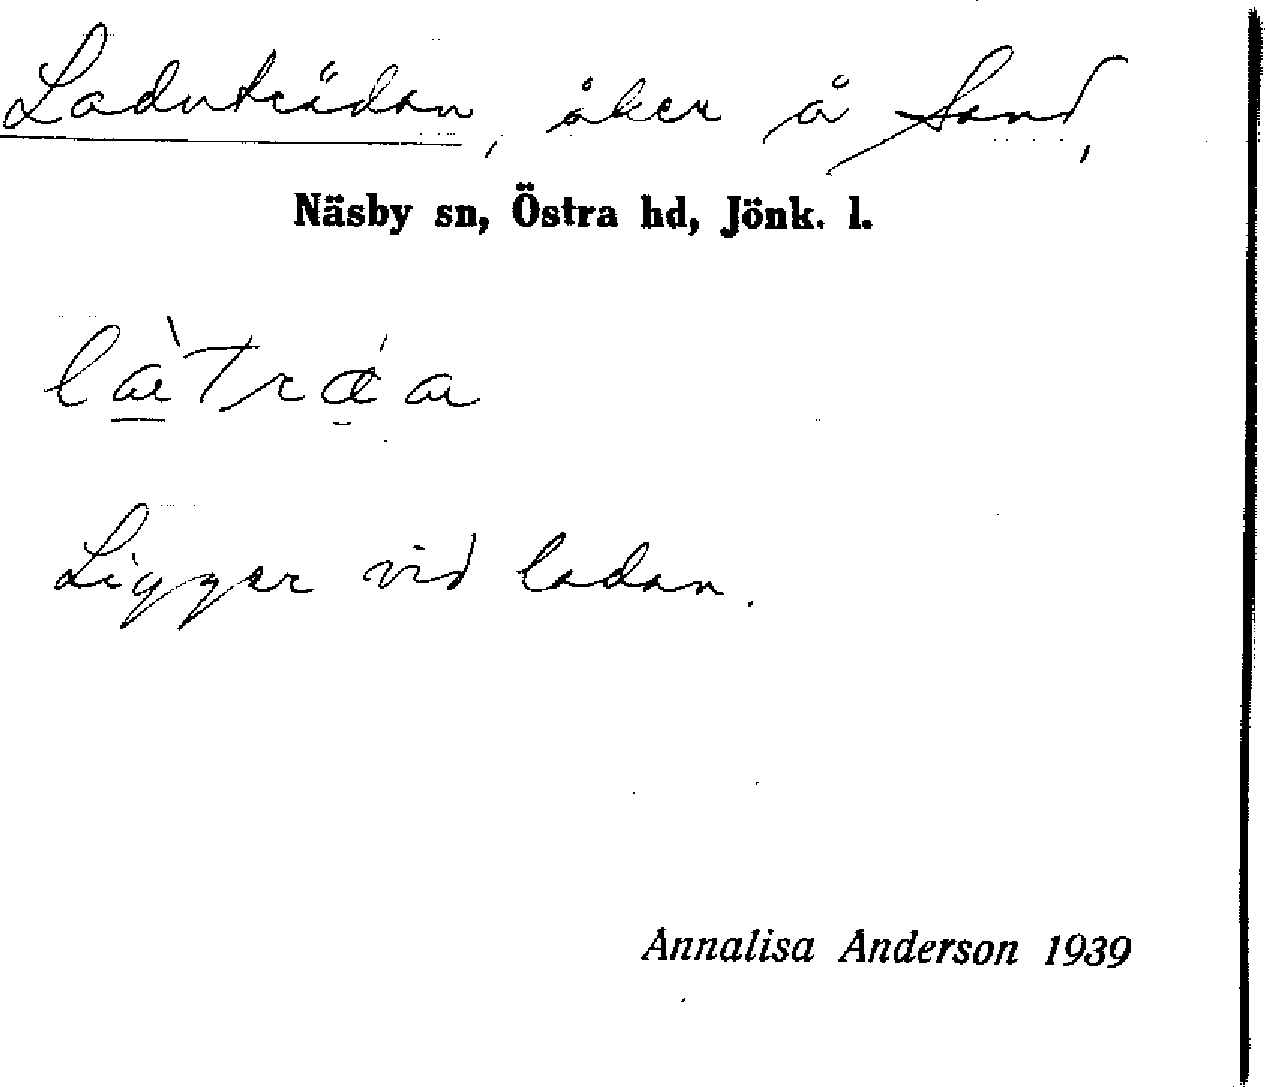 Laduträdan, åker å Sand,
Näsby sn, Östra hd, Jönk. l.
Ligger vid ladan.
Annalisa Anderson 1939